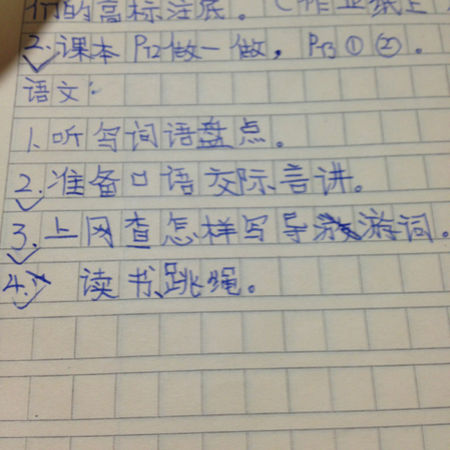 们的高标注底。(作业纸上
2.课本 P12做一做, P13 ① ②.
语文:
1.听写词语盘点。
2.准备口语交际言讲。
3.上网查怎样写导游词。
4. 读书、跳绳。